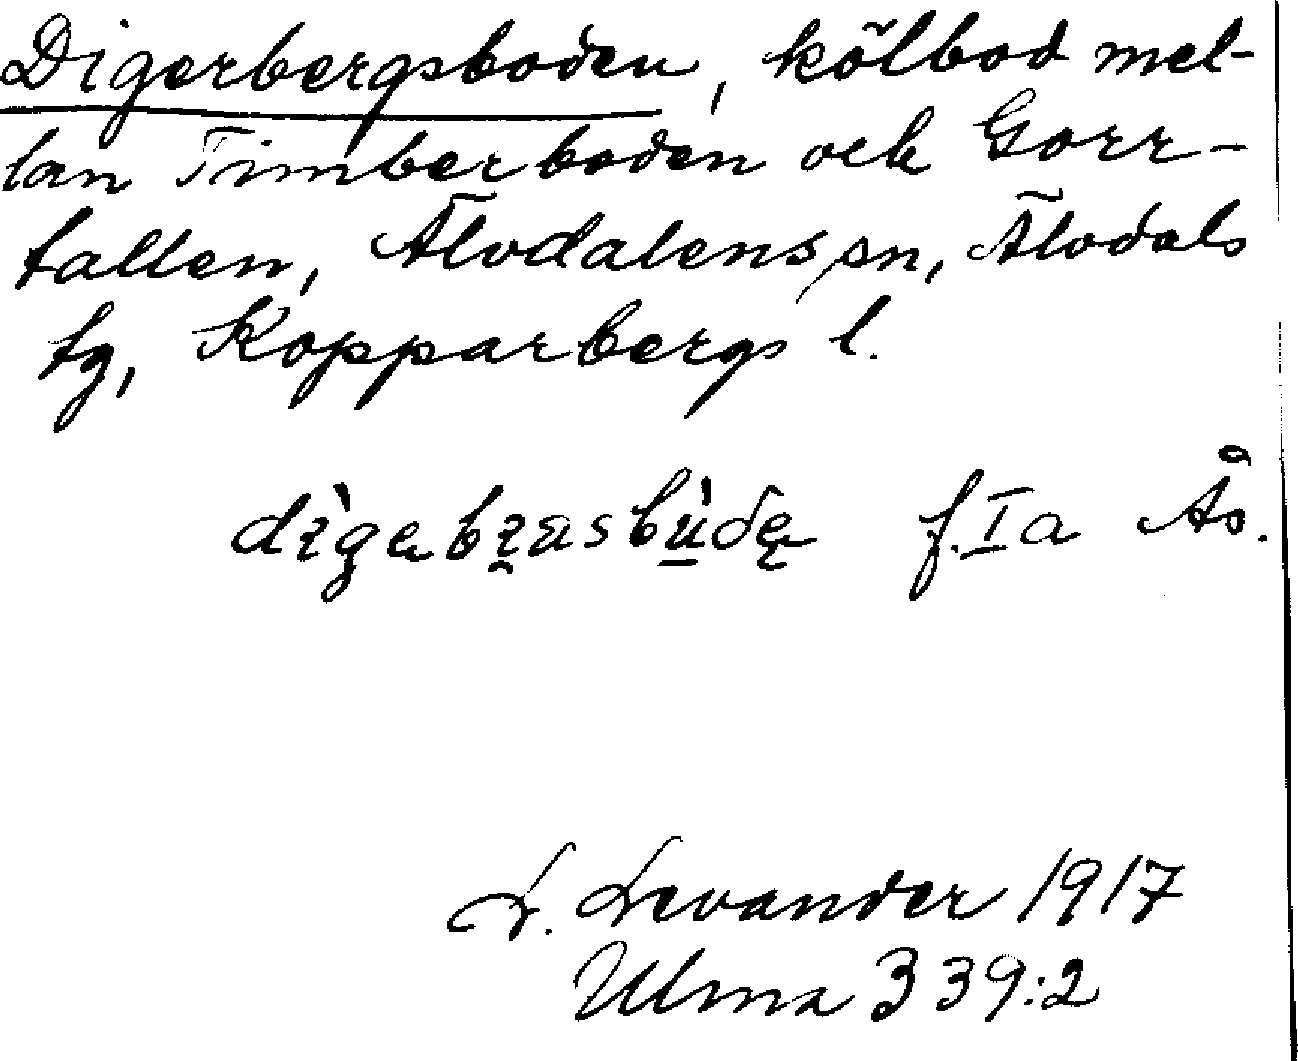 Digerbergsboden, kölbod mel-
lan Timberboden och Gorr-
tallen, Älvdalens sn, Älvdals
tg, Kopparbergs l.
f. Ia Ås.
L. Levander 1917
Ulma 339:2